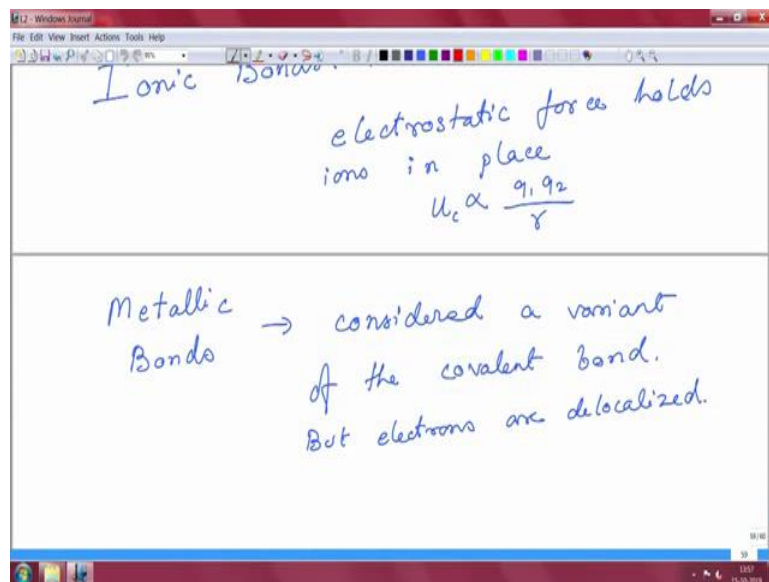 L2 - Windows Journal
File Edit View Insert Actions Tools Help
Ionic Bonds
electrostatic forces holds
ions in place
U_c ∝ q₁ q₂ / r
Metallic → considered a variant
Bonds of the covalent bond.
But electrons are delocalized.
59
13:57